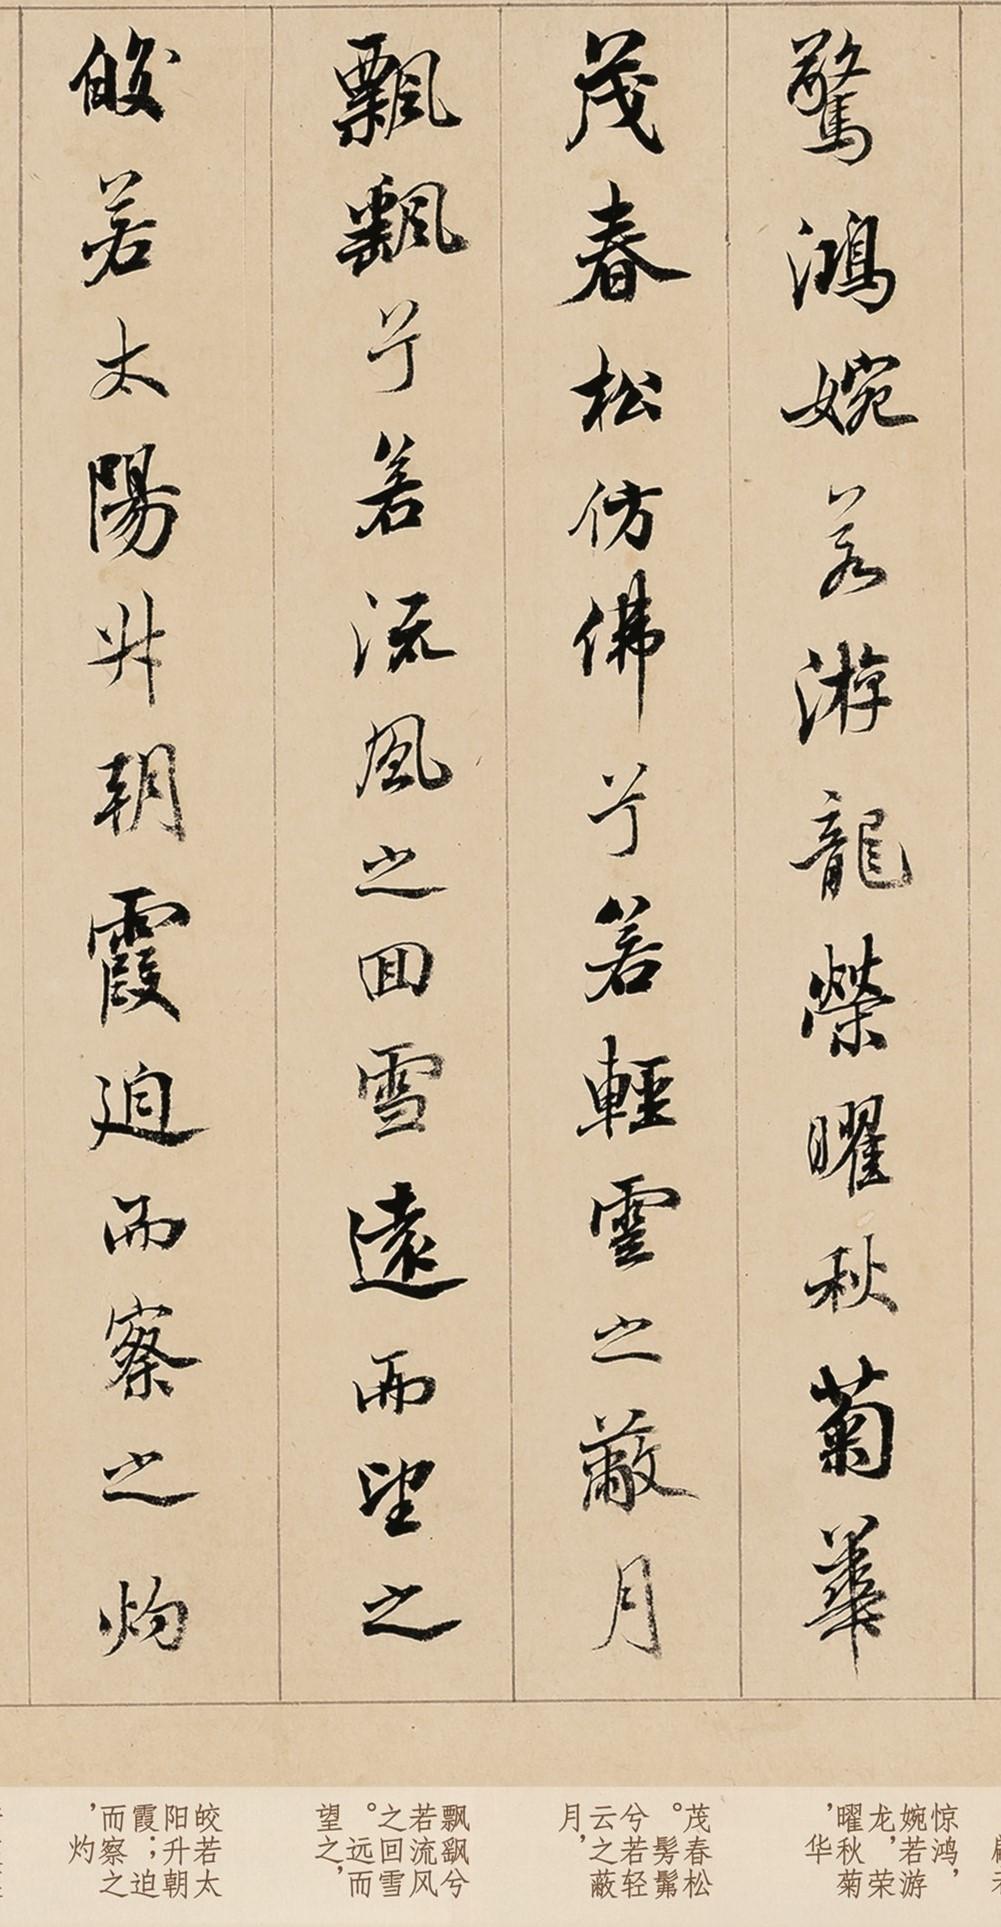 驚鴻婉若游龍榮曜秋菊華
茂春松仿佛兮若輕雲之蔽月
飄飖兮若流風之回雪遠而望之
皎若太陽升朝霞迫而察之灼
惊鸿，
婉若游
龙，荣
曜秋菊
，华
茂春松
。髣髴
兮若轻
云之蔽
月，
飘飖兮
若流风
之回雪
。远而
望之，
皎若太
阳升朝
霞；迫
而察之
，灼